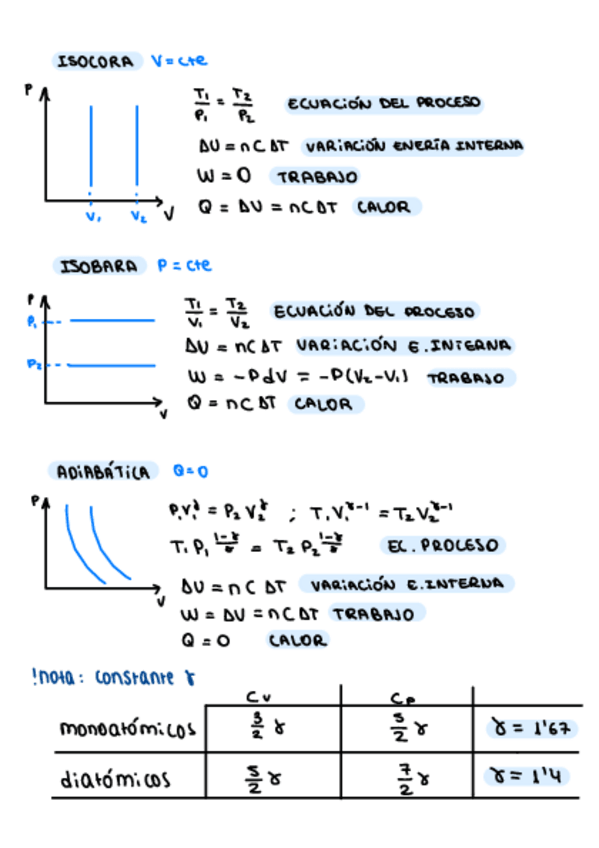 ISOCORA V = cte
P
T₁/P₁ = T₂/P₂ ECUACIÓN DEL PROCESO
ΔU = n C ΔT VARIACIÓN ENERÍA INTERNA
W = 0 TRABAJO
Q = ΔU = n C ΔT CALOR
V₁ V₂ V
ISOBARA P = cte
P
P₁
P₂
T₁/V₁ = T₂/V₂ ECUACIÓN DEL PROCESO
ΔU = n C ΔT VARIACIÓN E. INTERNA
W = -P dV = -P(V₂-V₁) TRABAJO
Q = n C ΔT CALOR
V
ADIABÁTICA Q=0
P
P₁V₁^γ = P₂V₂^γ ; T₁V₁^γ-1 = T₂V₂^γ-1
T₁ P₁^(1-γ/γ) = T₂ P₂^(1-γ/γ) EC. PROCESO
ΔU = n C ΔT VARIACIÓN E. INTERNA
V
W = ΔU = n C ΔT TRABAJO
Q = 0 CALOR
!nota: constante γ
Cv Cp
monoatómicos 3/2 γ 5/2 γ γ = 1'67
diatómicos 5/2 γ 7/2 γ γ = 1'4